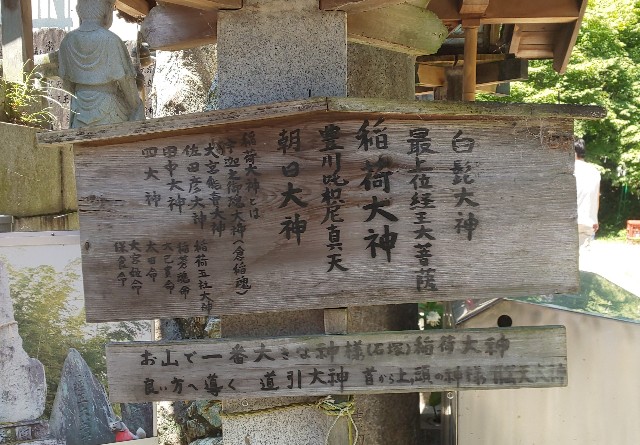 白髭大神
最上位経王大菩薩
稲荷大神
豊川吒枳尼真天
朝日大神
稲荷大神とは
宇迦之御魂大神(倉稲魂)
大宮能賣大神
佐田彦大神
田中大神
四大神
稲荷五社大神
大己貴命
太田命
大宮姫命
保食命
お山で一番大きな神様(石塚)稲荷大神
良い方へ導く 道引大神 昔から上の頭の神様